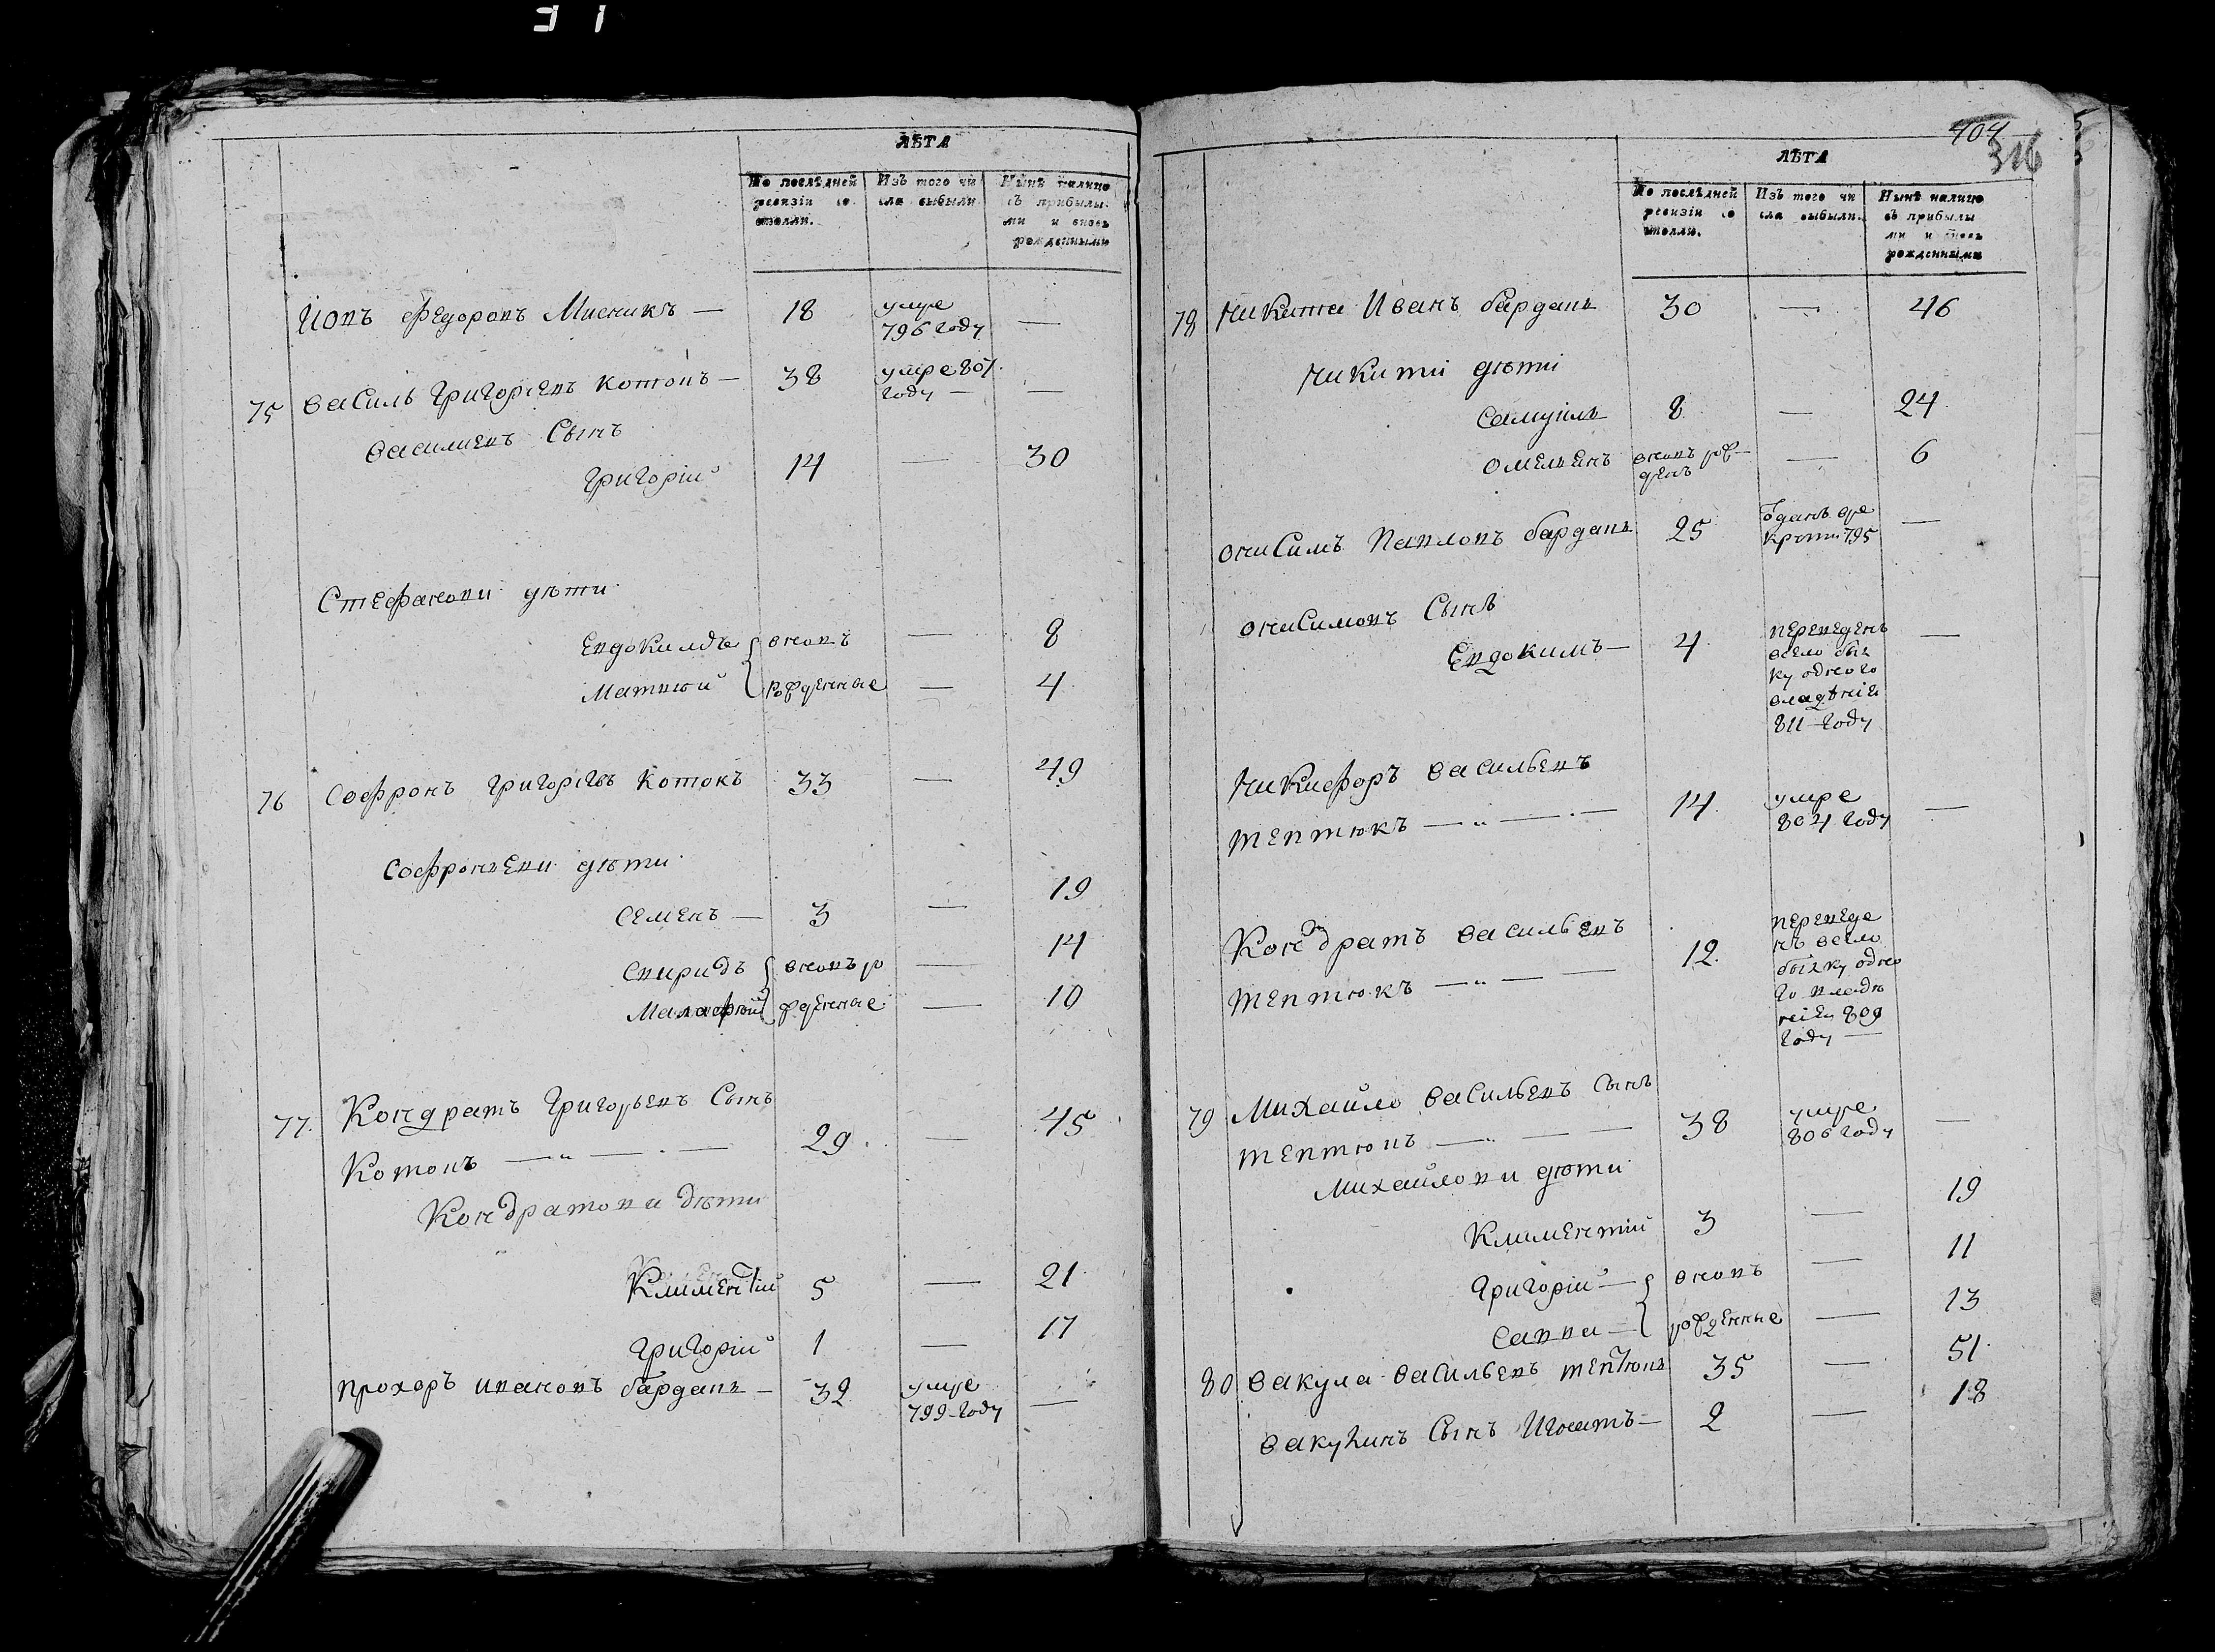 ЛѢТА
По послѣдней ревизіи состояли.
Изъ того числа выбыли.
Нынѣ налицо съ прибылыми и вновь рожденными
Иовъ Федоровъ Мисникъ — 18 умре 796 году —
75 Василь Григорієвъ Котовъ — 38 умре 801 году — —
Василиевъ Сынъ
Григорій 14 — 30
Стефанови дѣти
Евдокимъ { вновъ — 8
Матвѣй { рожденные — 4
76 Софронъ Григорієвъ Котокъ 33 — 49
Софронѣеви дѣти
Семенъ — 3 — 19
Спиридъ { вновъ ро — 14
Малафѣй { жденные — 10
77. Кондратъ Григорьевъ Сынъ
Котовъ — „ — . — 29. — 45
Кондратови дѣти
Климентій 5 — 21
Григорій 1 — 17
Прохоръ Ивановъ барданъ — 32 умре 799 году —
404
316
ЛѢТА
По послѣдней ревизіи состояли.
Изъ того числа выбыли.
Нынѣ налицо съ прибылыми и вновь рожденными
78 Никита Иванъ барданъ 30 — 46
Никиті дѣти
Самуилъ 8 — 24
Омелѣнъ вновъ рожденъ — 6
Онисимъ Павловъ барданъ 25 ѿданъ вре
крѹти 795 —
Онисимовъ Сынъ
Евдокимъ — 4 переведенъ
всело бык
ку одного
владѣніе
811 году —
Никифоръ Васильевъ
Тептюкъ — „ — . — 14 умре
804 году —
Кондратъ Васильевъ
Тептюкъ — „ — — 12. переведе
нъ всело
быкку одно
го владѣ
ніе 809
году —
79 Михайло Васильевъ Сынъ
Тептювъ — „ — — 38 умре
806 году —
Михайлови дѣти
Климентій 3 — 19
Григорій — { вновъ — 11
Савва — { рожденные — 13
80 Вакула Васильевъ Тептювъ 35 — 51
Вакулинъ Сынъ Игнатъ — 2 — 18